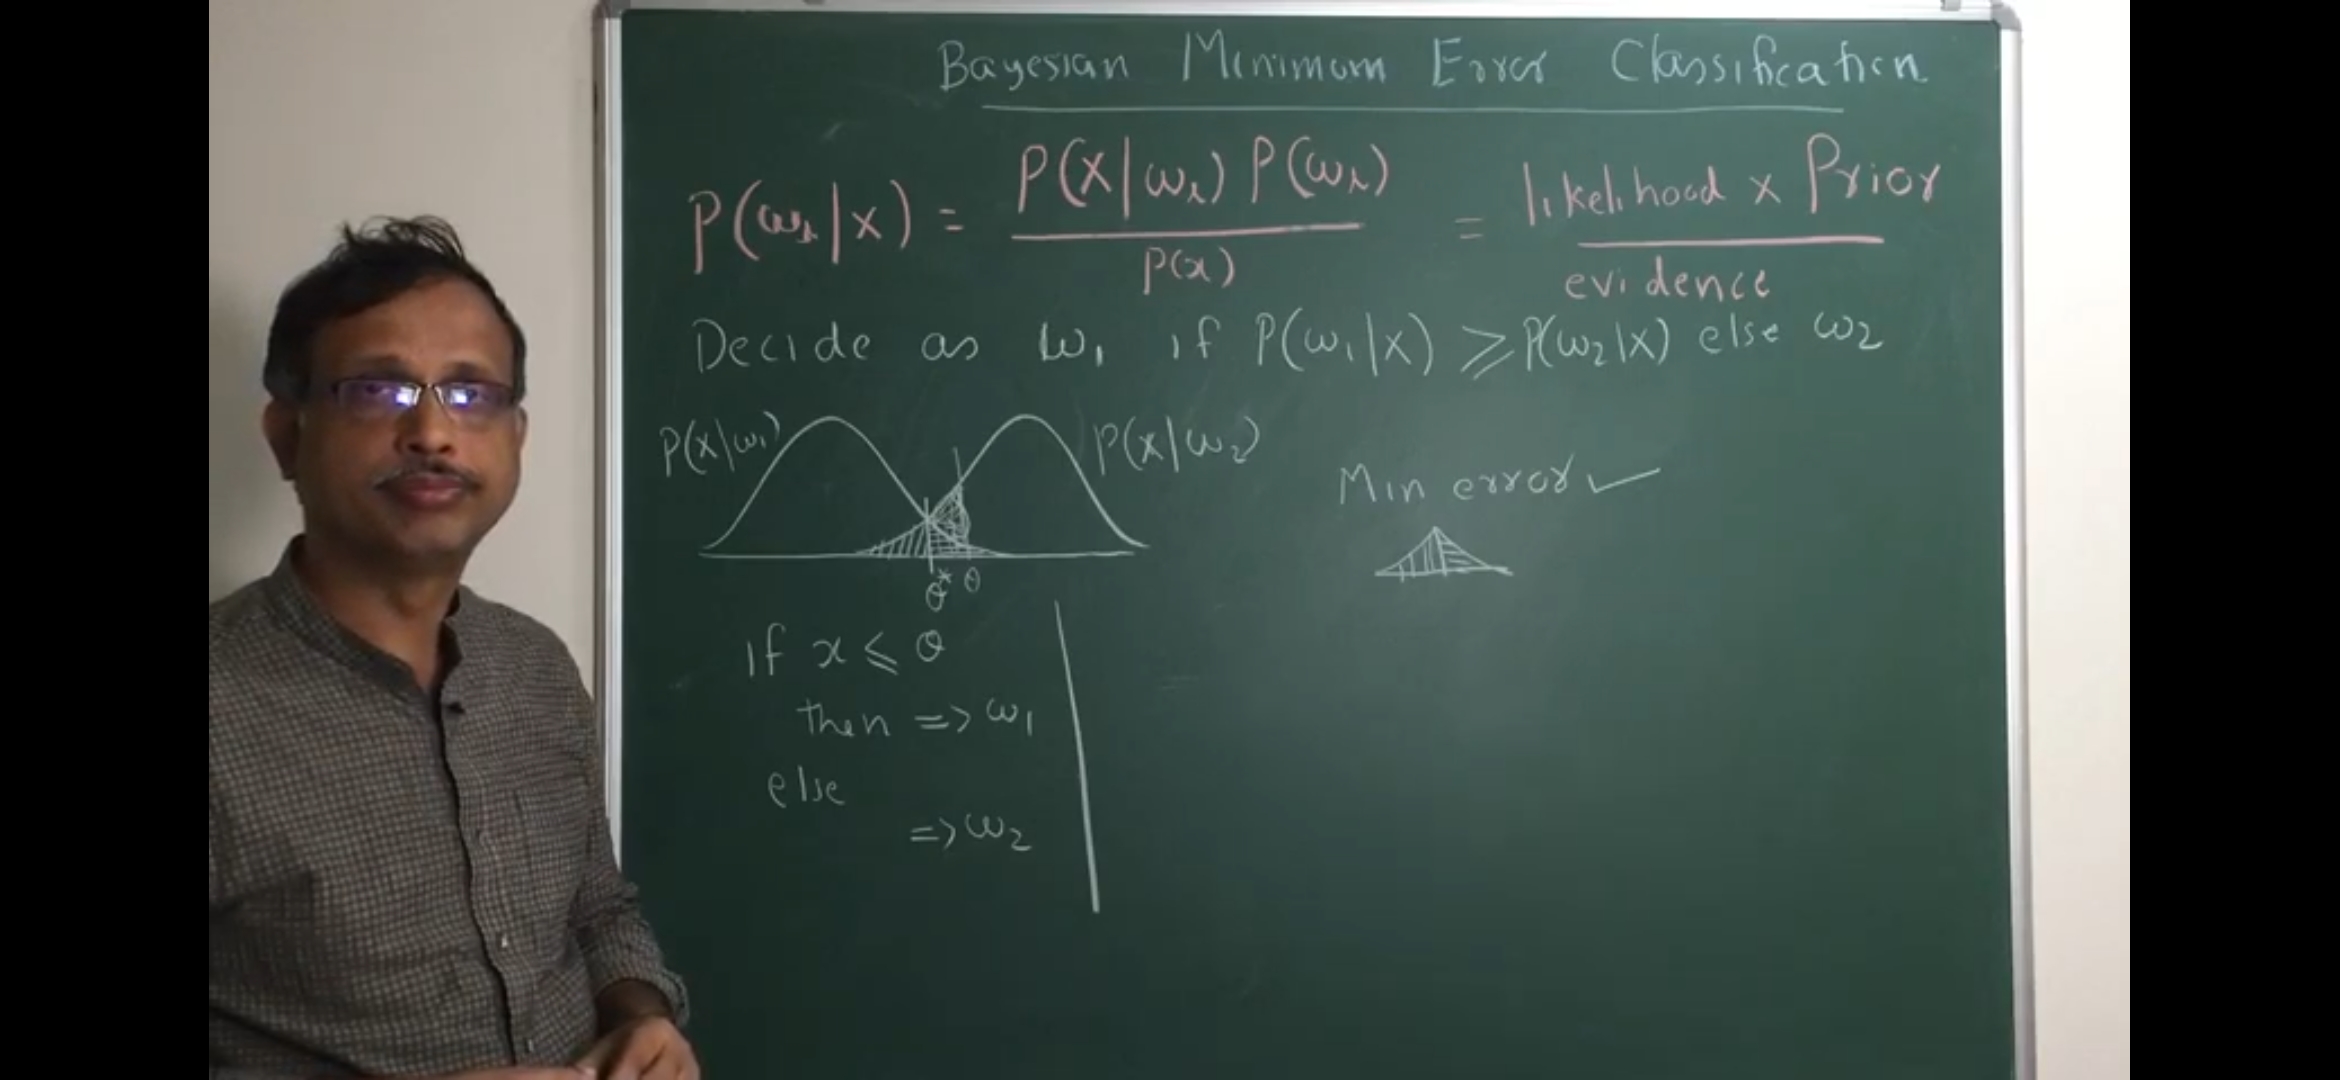 Bayesian Minimum Error Classification
P(ωi|x) = P(x|ωi) P(ωi) / P(x) = likelihood x Prior / evidence
Decide as ω1 if P(ω1|x) ⩾ P(ω2|x) else ω2
P(x|ω1) P(x|ω2)
Min error ✓
θ* θ
if x ⩽ θ
then => ω1
else
=> ω2